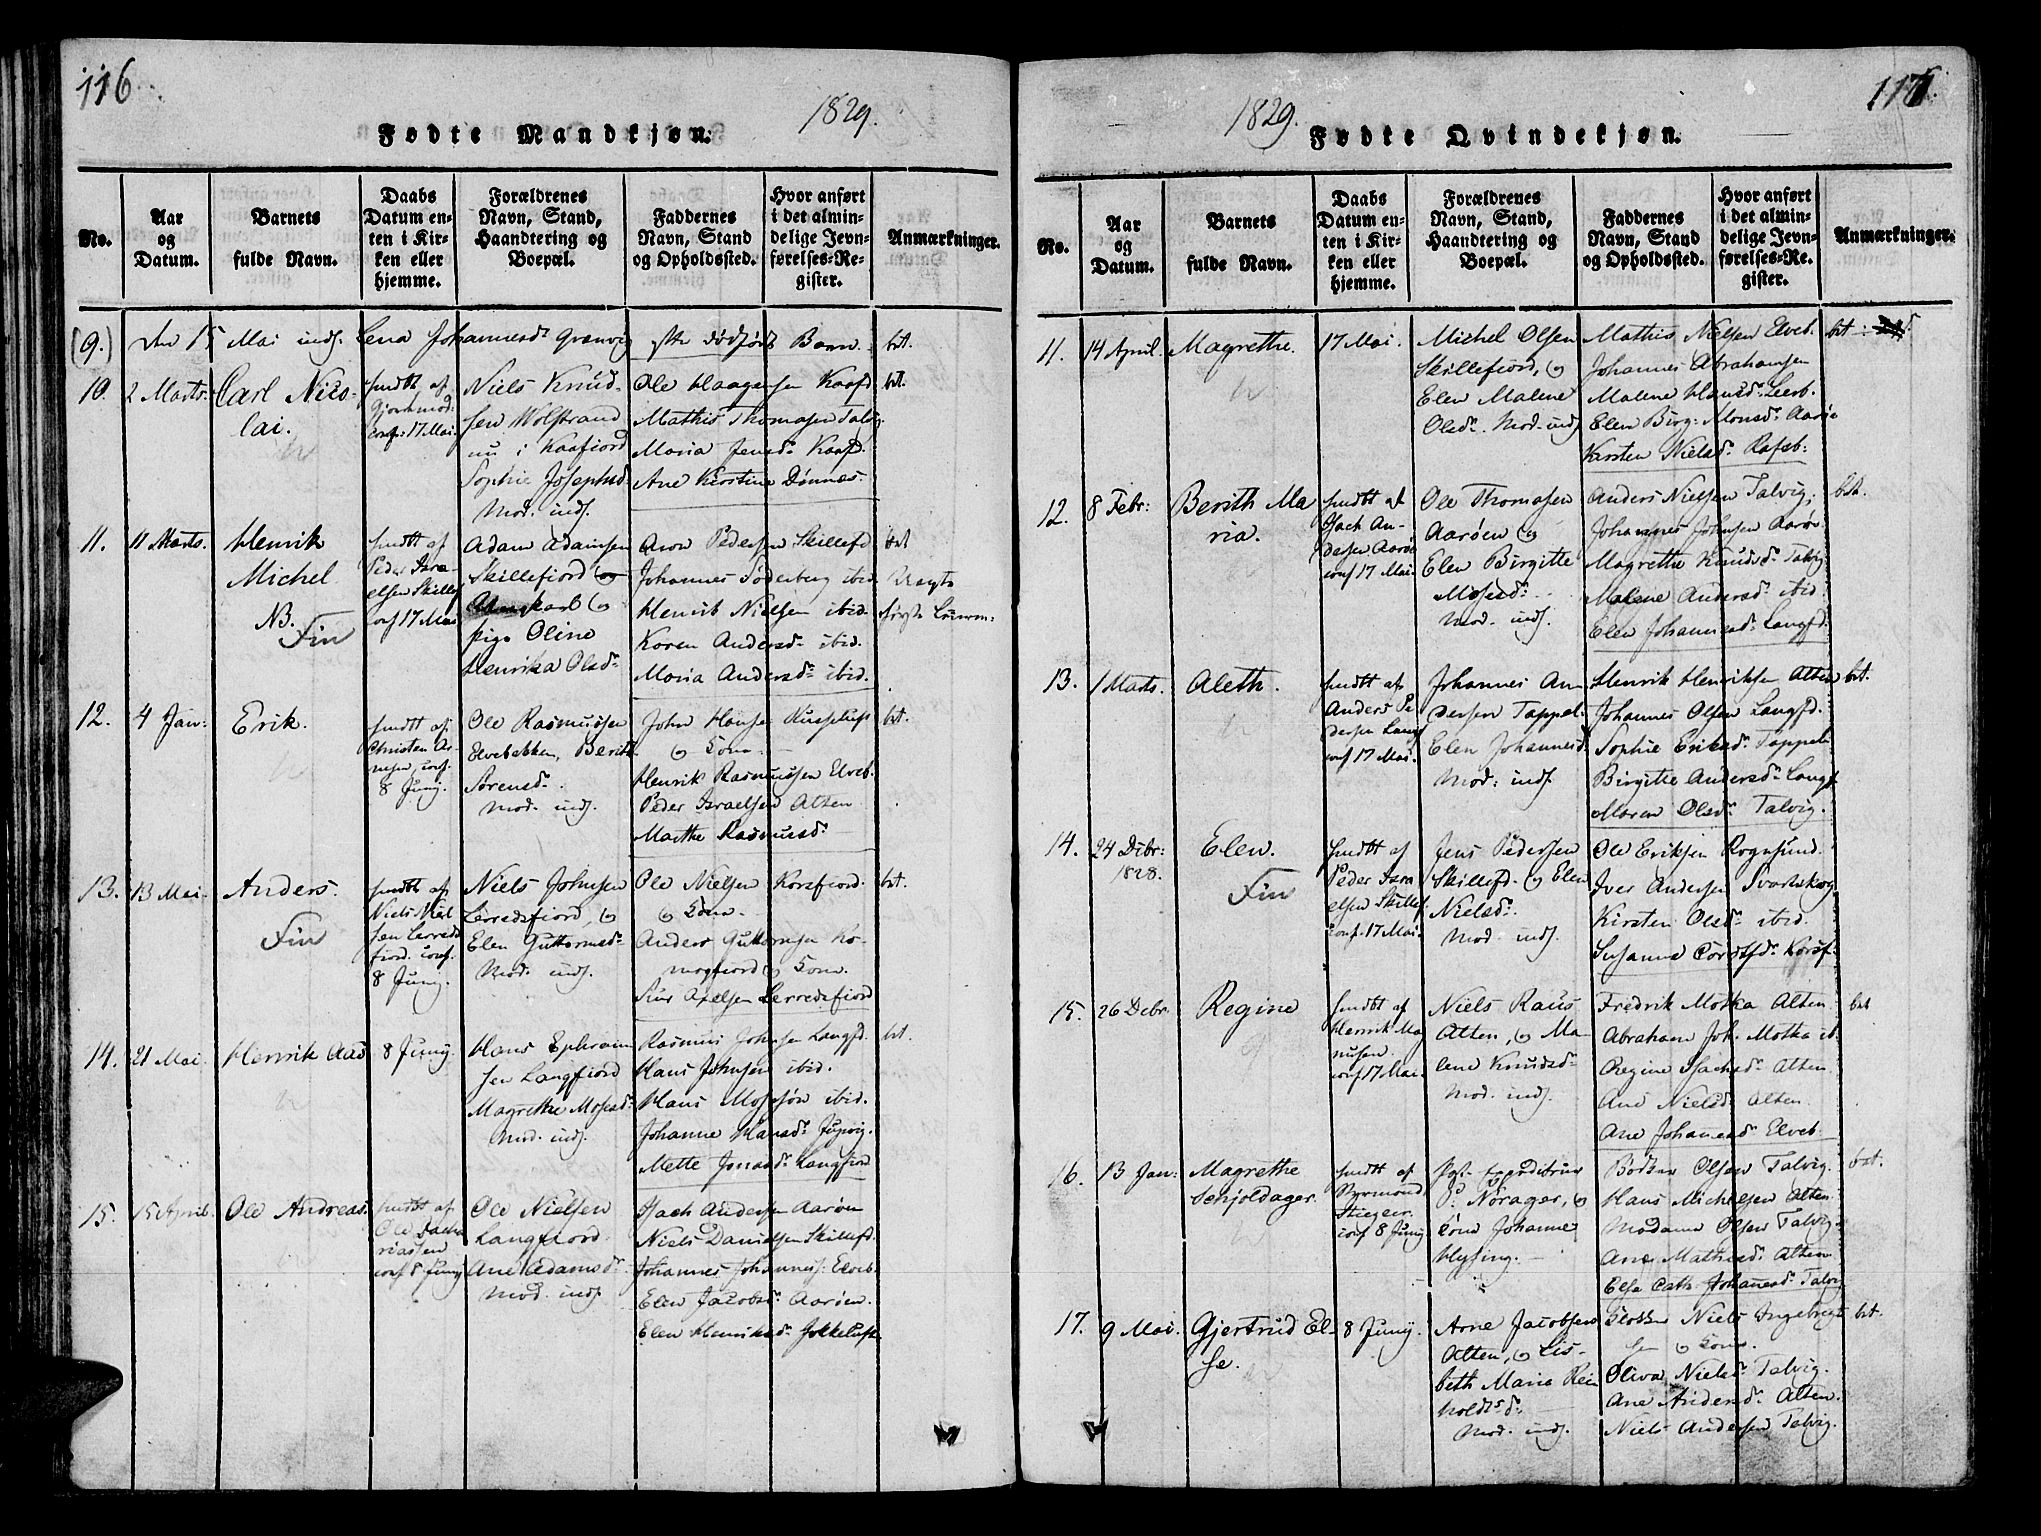 116
1829.
Fødte Mandkjøn.
No.
Aar
og
Datum.
Barnets
fulde Navn.
Daabs
Datum en-
ten i Kir-
ken eller
hjemme.
Forældrenes
Navn, Stand,
Haandtering og
Boepæl.
Faddernes
Navn, Stand
og Opholdssted.
Hvor anført
i det almin-
delige Jevn-
førelses-Re-
gister.
Anmærkninger.
(9.) den 15 Mai inds. Lena Johannesdr Grønvig dødfødt Barn. bet.
10. 2 Marts. Carl Nico-
lai.
hmdbt af
conf: 17 Mai.
Niels Knud-
sen Wolfstrand
nu i Kaafiord
Sophie Josephsd.
Mod. inds.
Ole Haagensen Kaafd
Mathis Thomasen Talvig
Maria Jensdr Kaafd.
Ane Kirstine Dønnes.
bet.
11. 11 Marts. Henrik
Michel
NB.
Fin
hmdbt af
Peder Isra-
elsen Skillef
conf 17 Mai
Adam Adamsen
Skillefiord og
pige Oline
Henrika Olsdr
Aron Pedersen Skillefd
Johannes Søderberg ibid.
Henrik Nielsen ibid.
Karen Andersdr ibid.
Maria Andersdr ibid.
bet
Uægte
12. 4 Jan: Erik.
hmdbt af
Christen Ar-
nesen conf.
8 Junij.
Ole Rasmussen
Elvebakken, Berith
Sørensdr.
Mod. inds.
John Hansen
og Kone.
Henrik Rasmussen Elveb.
Peder Israelsen Alten
Marthe Rasmusdr
bet.
13. 13 Mai. Anders.
Fin
hmdbt af
Niels Niel
sen Lerreds
fiord. conf.
8 Junij.
Niels Johnsen
Lerredsfiord, og
Elen Guttormsdr
Mod. inds.
Ole Nielsen Korsfiord.
og Kone.
Anders Guttormsen Ko-
magfiord og Kone.
Siur Axelsen Lerredsfiord
bet.
14. 21 Mai. Henrik Aas
8 Junij.
Hans Ephraim
sen Langfiord
Magrethe Mosesdr
Mod. inds.
Rasmus Johnsen Langfd.
Hans Johnsen ibid.
Hans Mosesøn ibid.
Johanne Hansdr
Mette Jonasdr Langfiord
bet.
15. 15 April. Ole Andreas.
hmdbt af
Ole Zacha
riassen
conf 8 Junij
Ole Nielsen
Langfiord.
Ane Adamsdr
Mod. inds.
Isach Andersen Aarøen
Niels Danielsen Skillefd.
Johannes Johannes: Elveb.
Elen Jacobsdr Aarøen.
Elen Henriksdr
117.
1829.
Fødte Qvindekjøn.
No.
Aar
og
Datum.
Barnets
fulde Navn.
Daabs
Datum en-
ten i Kir-
ken eller
hjemme.
Forældrenes
Navn, Stand,
Haandtering og
Boepæl.
Faddernes
Navn, Stand
og Opholdssted.
Hvor anført
i det almin-
delige Jevn-
førelses-Re-
gister.
Anmærkninger.
11. 14 April. Magrethe.
17 Mai.
Michel Olsen
Skillefiord, og
Elen Malene
Olsdr. Mod. inds
Mathis Nielsen Elveb.
Johannes Abrahamsen
Malene Hansdr Leerb.
Elen Birg: Monsdr Aarøe
Karsten Nielsdr Rafsb:
bet.
12. 8 Febr: Berith Ma
ria.
hmdbt af
Isach An-
dersen Aarøe
conf 17 Mai.
Ole Thomasen
Aarøen og
Elen Birgitte
Mosesdr.
Mod. inds.
Anders Nielsen Talvig.
Johannes Johnsen Aarøe
Magrethe Knudsdr Talvig
Malene Andersdr ibid.
Elen Johannesdr Langfd.
bet.
13. 1 Marts. Aleth.
hmdbt af
Anders Pe
dersen Langf
conf 17 Mai.
Johannes An
dersen Tappel.
Elen Johannesd.
Mod: inds.
Henrik Henriksen Alten
Johannes Olsen Langfd.
Sophie Eriksdr Tappel
Birgitte Andersdr Langf
Maren Olsdr Talvig.
bet.
14. 24 Debr:
1828.
Elen.
Fin
hmdbt af
Peder Isra
elsen Skillef
conf. 17 Mai.
Jens Pedersen
Skillefd. og Elen
Nielsdr.
Mod. inds.
Ole Eriksen Rognsund.
Iver Andersen Svartskog
Kirsten Olsdr ibid.
Susanne Cordtsdr Korsf.
15. 26 Debr Regine
hmdbt af
Henrik Mag
nusen
conf 17 Mai.
Niels Raus
Alten, og Ma-
lene Knudsdr
Mod. inds.
Fredrik Motka Alten
Abraham Joh. Motka ib.
Regine Isachsdr Alten.
Ane Nielsd Alten.
Ane Johanesdr Elveb.
bet
16. 13 Jan: Magrethe
Schjoldager.
hmdbt af
conf 8 Junij.
Pgt. Expediteur
P. Norager, og
Kone Johanne
Hysing.
Bødker Olsen Talvig.
Hans Michelsen Alten.
Madame Olsen Talvig.
Ane Mathisdr Alten
Else Cath. Johanesdr Talvig
bet.
17. 9 Mai. Gjertrud El-
se.
8 Junij.
Arne Jacobsen
Alten, og Lis-
beth Maria Rein
holdtsdr.
Mod. inds.
Klokker Niels Ingebrigt
sen og Kone.
Oliva Nielsdr Talvig.
Ane Andersdr Alten.
Niels Andersen Talvig.
bet.